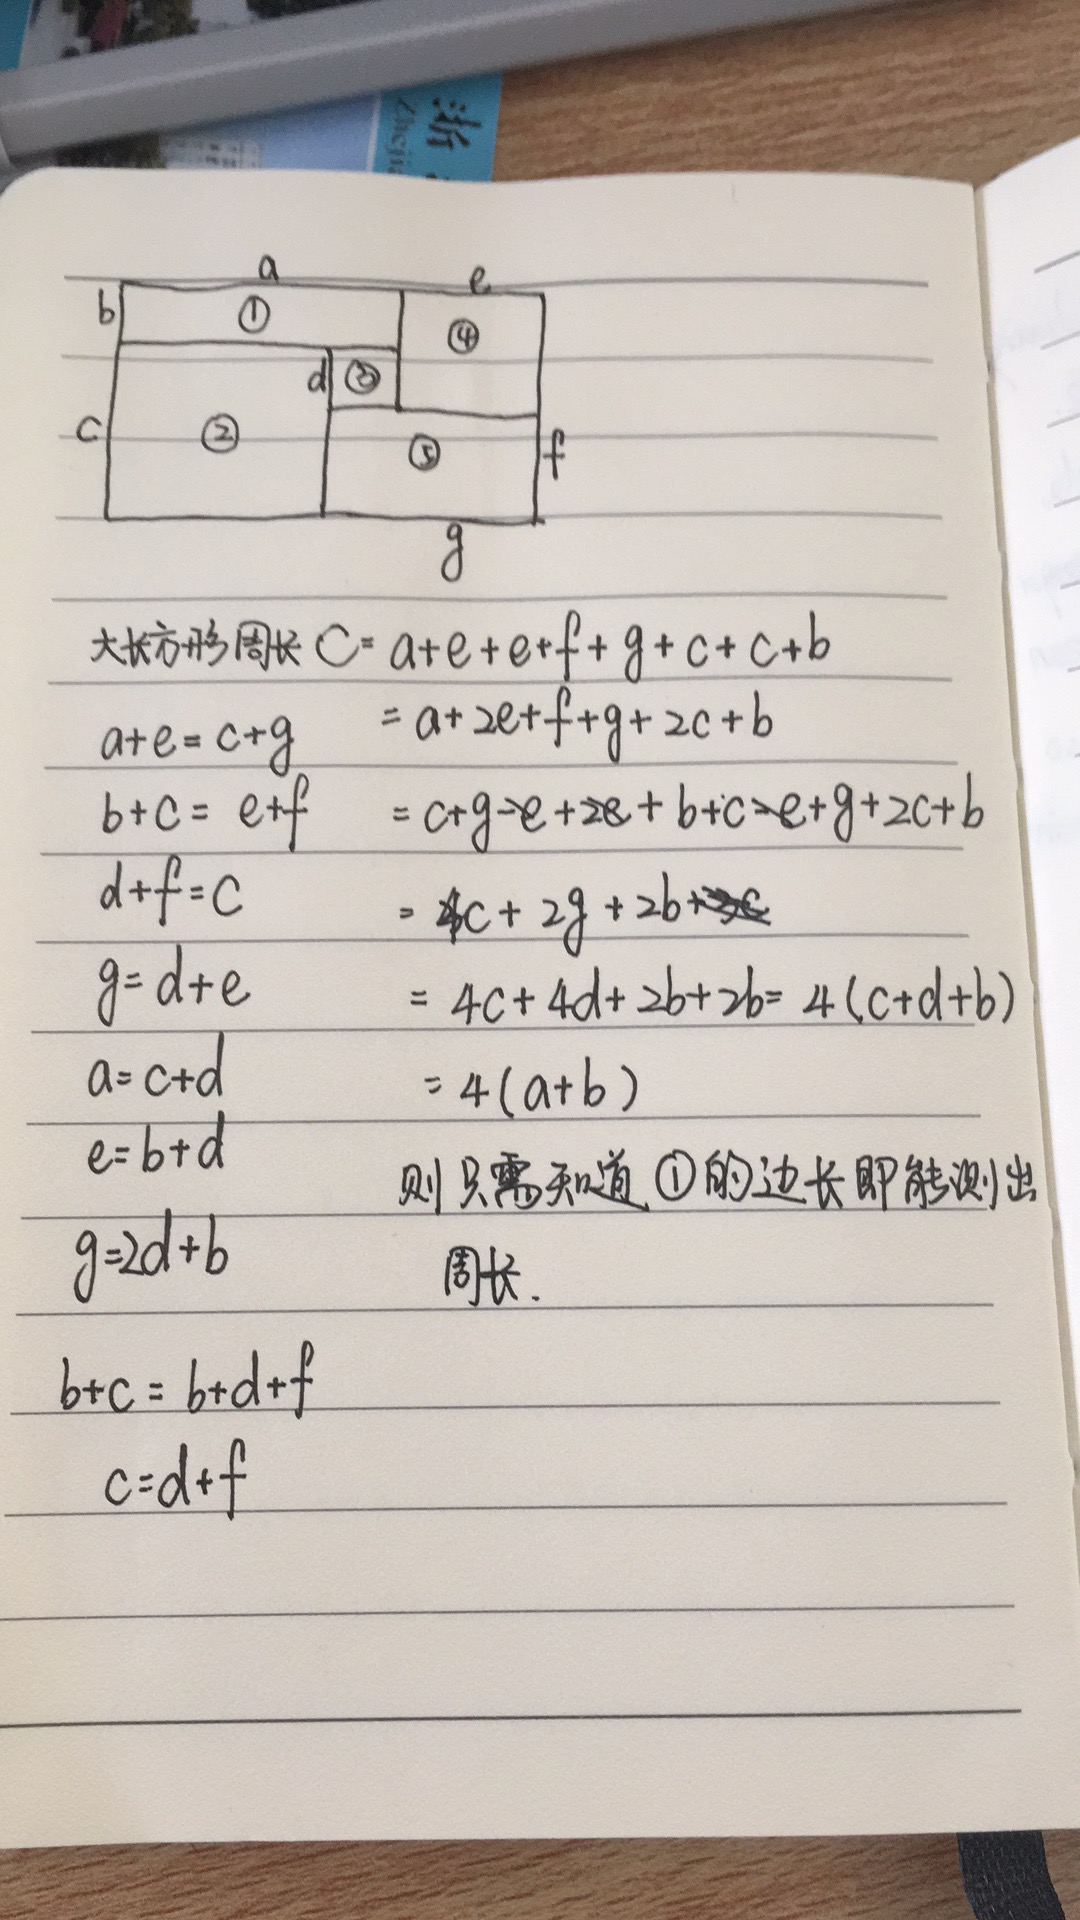 浙
Zheji
a e
b ① ④
d ③
c ② ⑤ f
g
大长方形周长 C= a+e+e+f+g+c+c+b
a+e=c+g = a+2e+f+g+2c+b
b+c= e+f = c+g-e+2e+b+c-e+g+2c+b
d+f=c = 4c+2g+2b
g=d+e = 4c+4d+2b+2b= 4(c+d+b)
a=c+d = 4(a+b)
e=b+d 则只需知道①的边长即能测出
g=2d+b 周长.
b+c= b+d+f
c=d+f